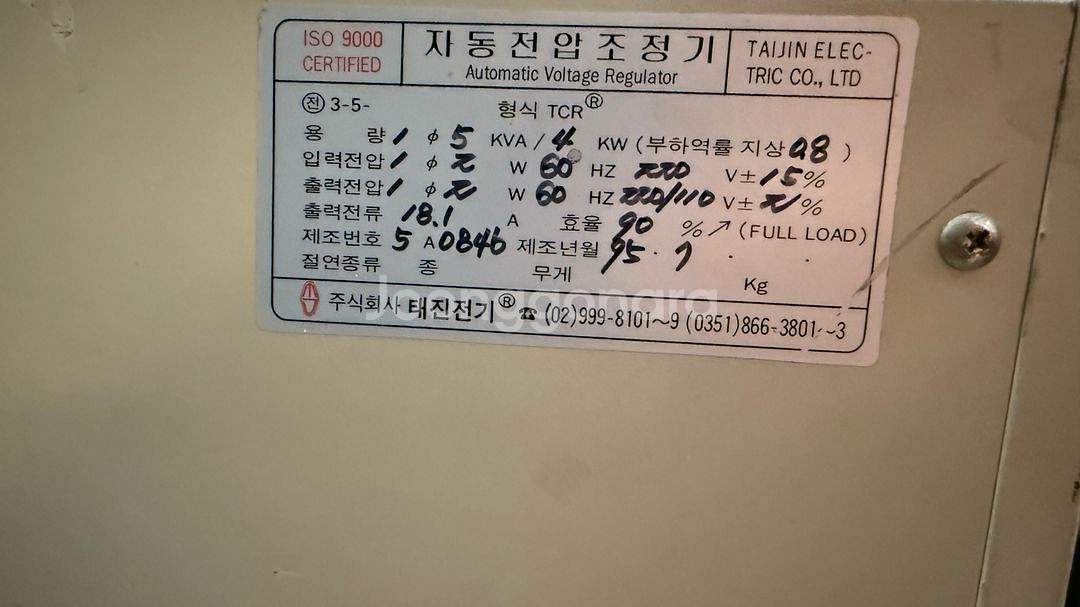 ISO 9000 CERTIFIED
자동전압조정기
Automatic Voltage Regulator
TAIJIN ELEC-
TRIC CO., LTD
전 3-5-
형식 TCR®
용 량 1 φ 5 KVA / 4 KW (부하역률 지상 0.8 )
입력전압 1 φ 2 W 60 HZ 220 V± 15 %
출력전압 1 φ 2 W 60 HZ 220/110 V± 2/1 %
출력전류 18.1 A 효율 90 %↗ (FULL LOAD)
제조번호 5 A0846 제조년월 95. 7 .
절연종류 종 무게 Kg
주식회사 태진전기® ☎ (02)999-8101~9 (0351)866-3801~3
Joonggonara